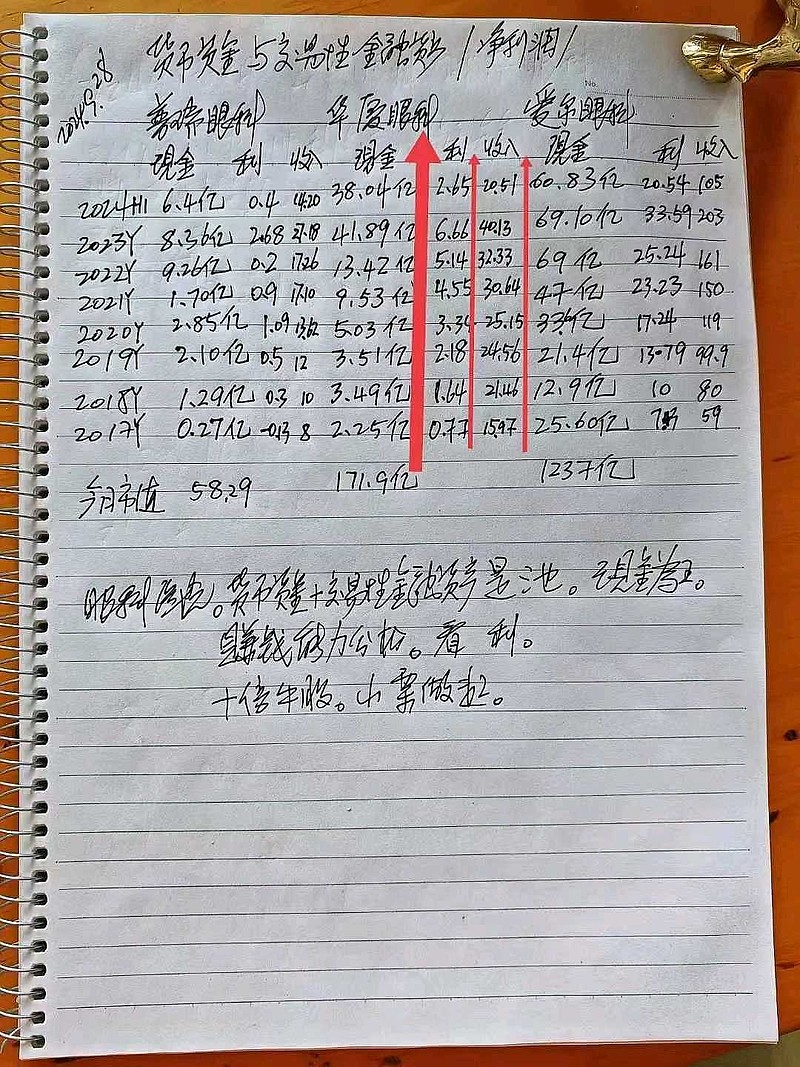 2024.9.28
货币资金与交易性金融资产/净利润/
普瑞眼科 华厦眼科 爱尔眼科
现金 利 收入 现金 利 收入 现金 利 收入
2024H1 6.4亿 0.4 14.20 38.04亿 2.65 20.51 60.83亿 20.54 105
2023Y 8.36亿 2.68 27.18 41.89亿 6.66 40.13 69.10亿 33.59 203
2022Y 9.26亿 0.2 17.26 13.42亿 5.14 32.33 69亿 25.24 161
2021Y 1.70亿 0.9 17.10 9.53亿 4.55 30.64 47亿 23.23 150
2020Y 2.85亿 1.09 13.62 5.03亿 3.34 25.15 33亿 17.24 119
2019Y 2.10亿 0.5 12 3.51亿 2.18 24.56 21.4亿 13.79 99.9
2018Y 1.29亿 0.3 10 3.49亿 1.64 21.46 12.9亿 10 80
2017Y 0.27亿 -0.13 8 2.25亿 0.77 15.97 25.60亿 59
今日市值 58.29 171.9亿 1237亿
眼科医院。货币资金+交易性金融资产是池。现金为王。
赚钱能力分析。看利。
十倍牛股。小票做起。